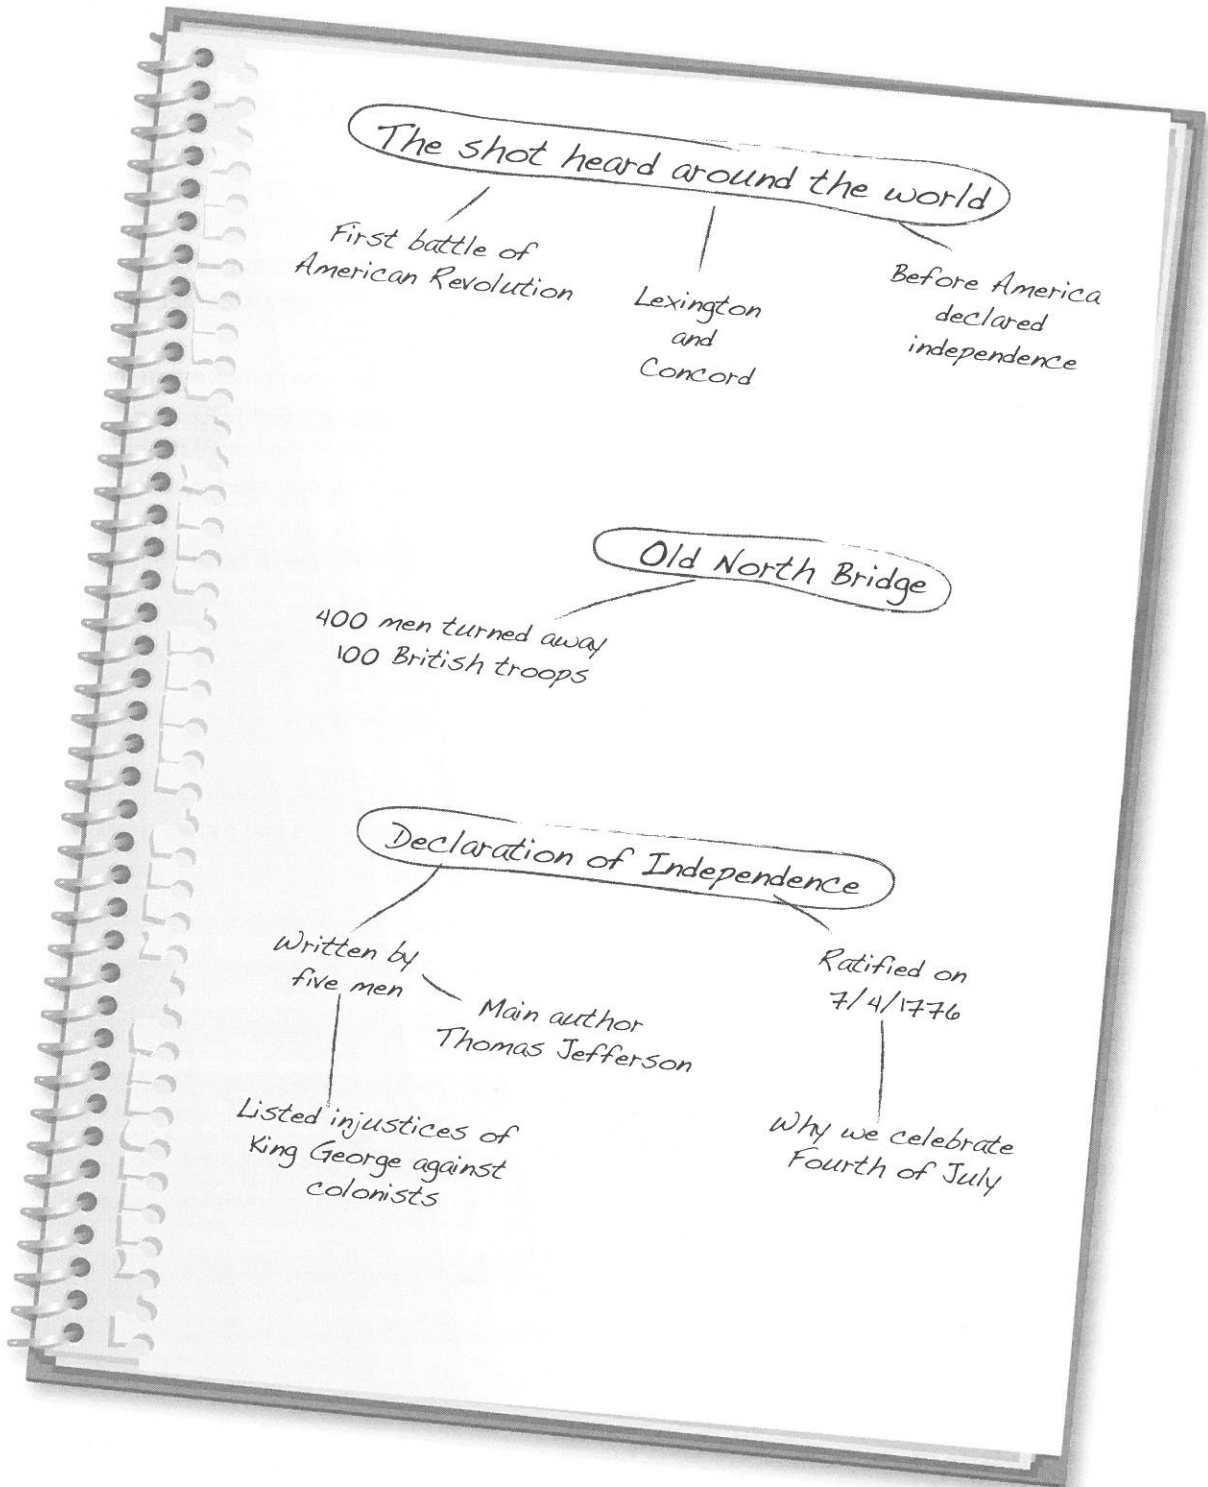 The shot heard around the world
First battle of
American Revolution
Lexington
and
Concord
Before America
declared
independence
Old North Bridge
400 men turned away
100 British troops
Declaration of Independence
Written by
five men
Main author
Thomas Jefferson
Listed injustices of
King George against
colonists
Ratified on
7/4/1776
Why we celebrate
Fourth of July